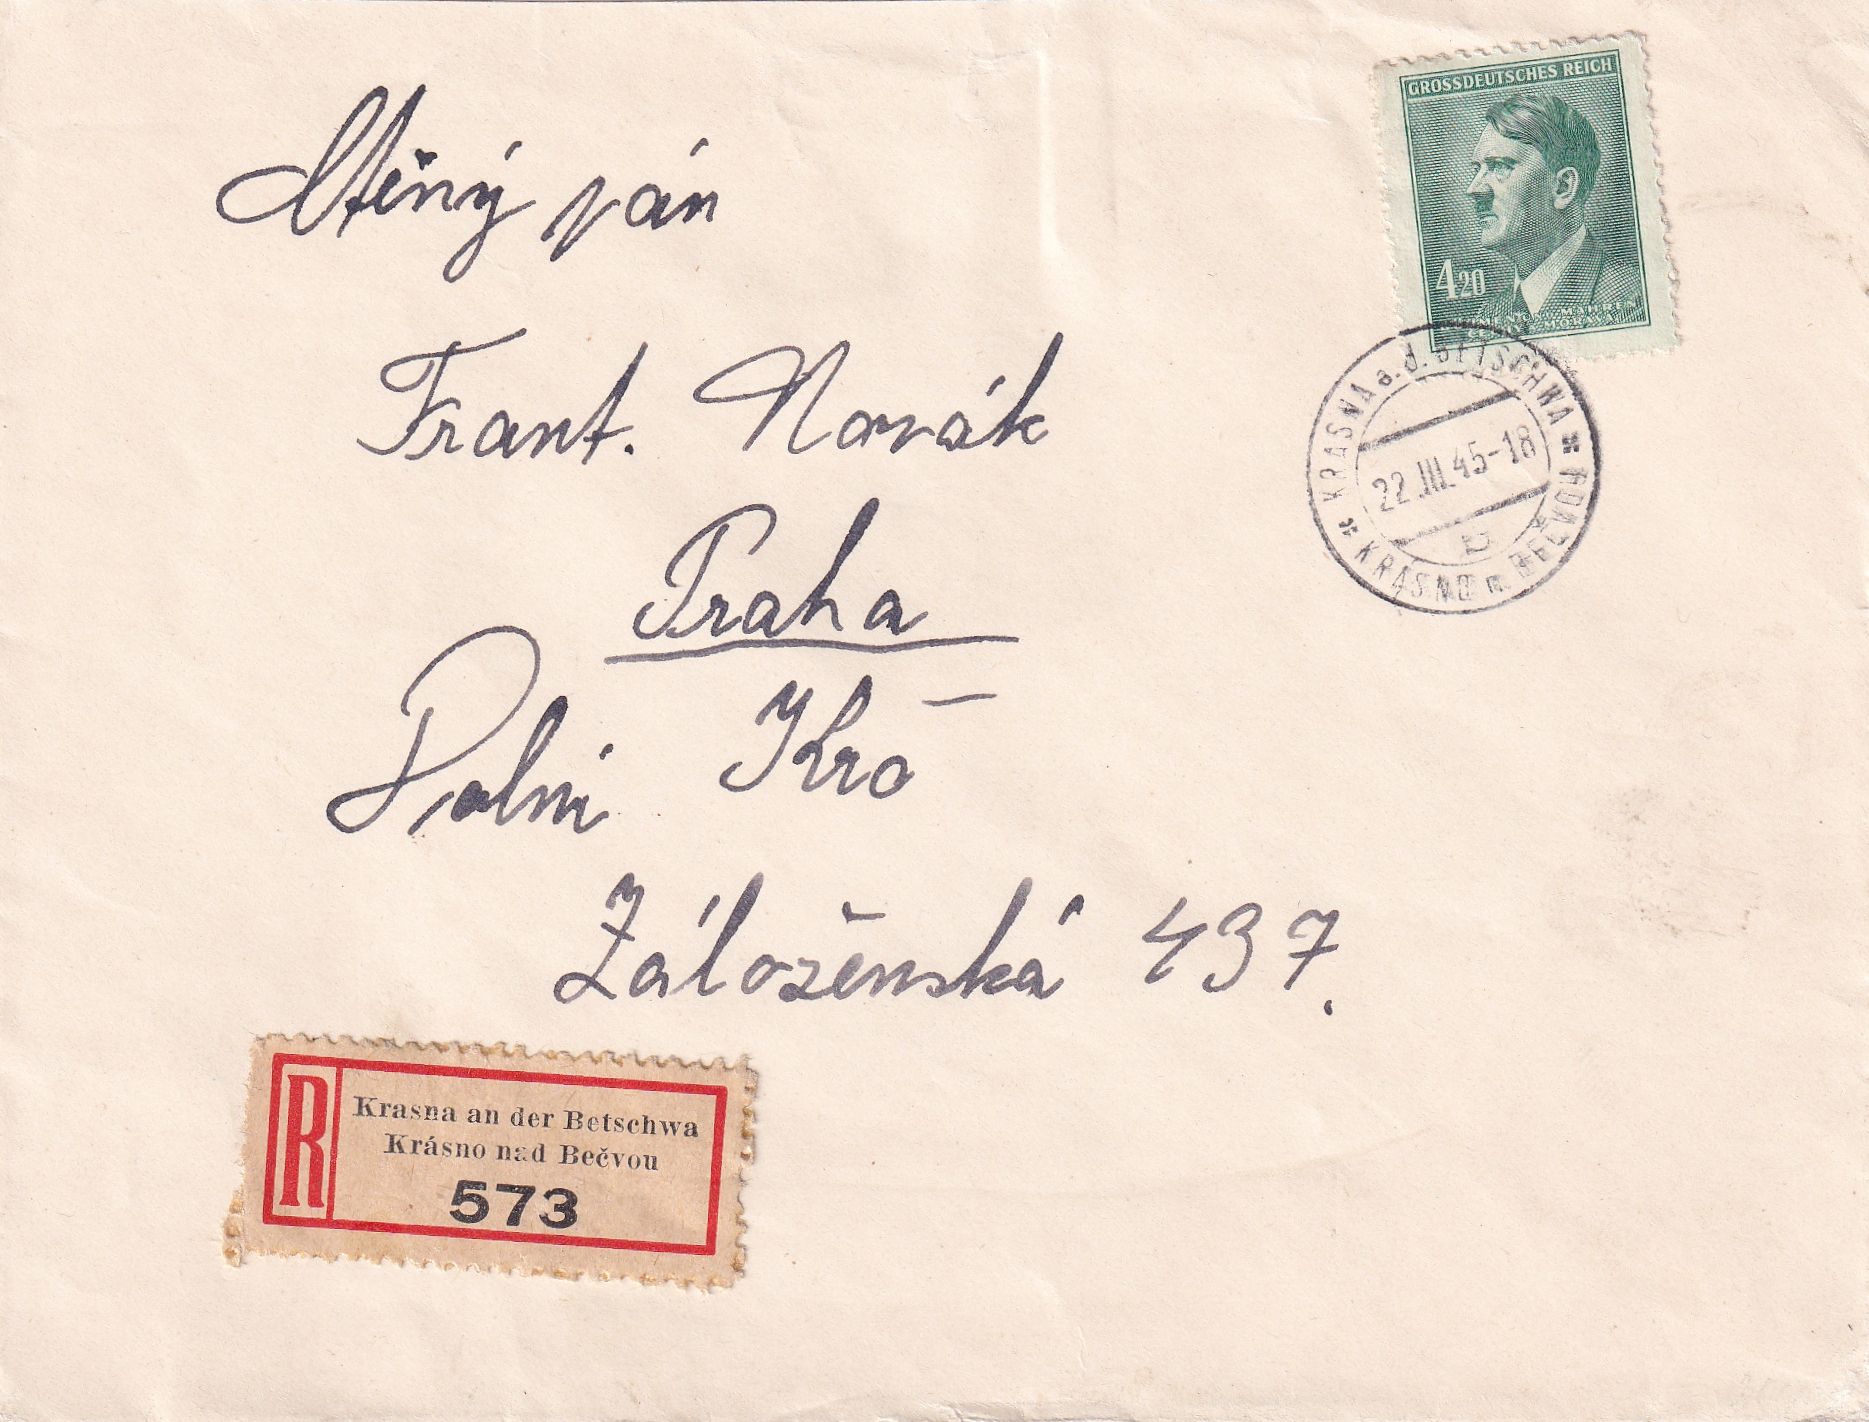 Ctěný pán
Frant. Novák
Praha
Dolní Krč
Záloženská 437.
GROSSDEUTSCHES REICH
4 20
BÖHMEN u. MÄHREN
MORAVA
KRASNA a. d. BETSCHWA
22.III.45-18
KRÁSNO n. BEČVOU
R
Krasna an der Betschwa
Krásno nad Bečvou
573